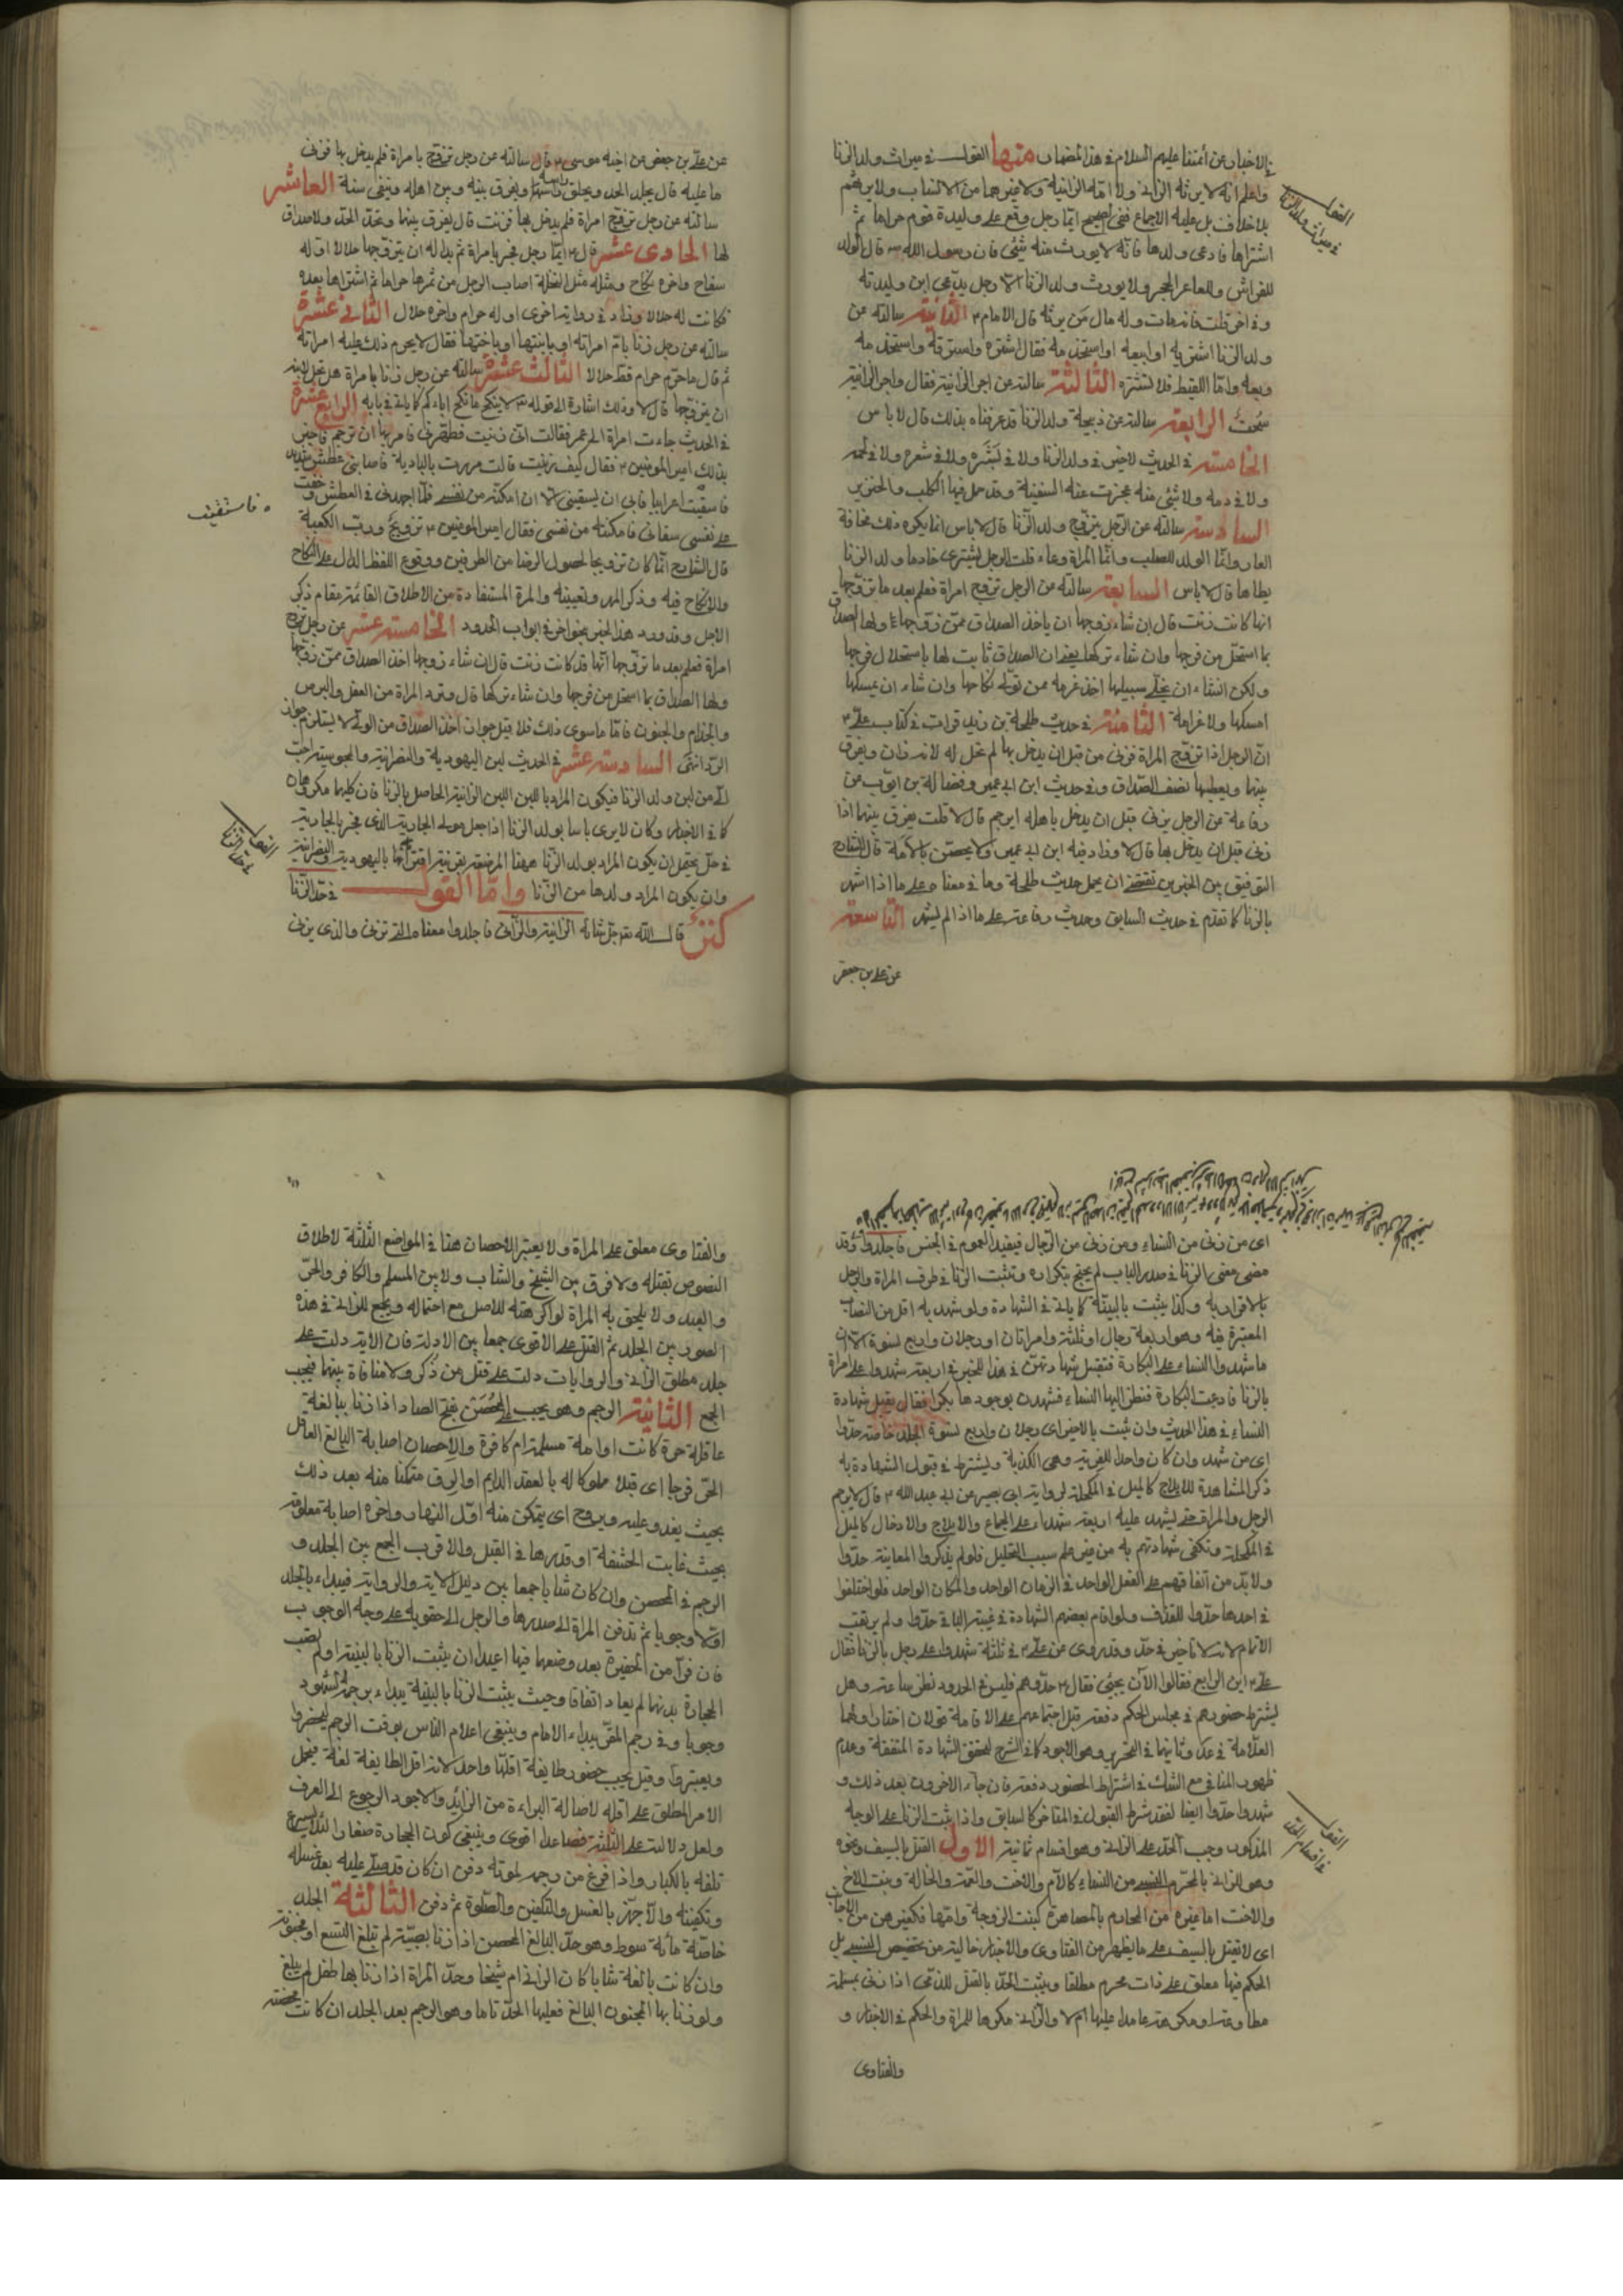 الاخبار عن أئمتنا عليهم السلام في هذا المضمار منها القول في ميراث ولد الزنا
واعلم انه لا يرثه الزاني ولا امّه الزانية ولا غيرهما من الانساب ولا يرثهم
بلا خلاف بل عليه الاجماع ففي الصحيح ايّما رجل وقع على وليدة قوم حراما ثم
اشتراها فادعى ولدها فانه لا يورث منه شئ فان رسول الله ص قال الولد
للفراش وللعاهر الحجر ولا يورث ولد الزنا الا رجل يدّعي ابن وليدته
وفي اخر قلت فانه مات وله مال من يرثه قال الامام ع الثانية سالته عن
ولد الزنا اشتريه او ابيعه او استخدمه فقال اشتره واسترقه واستخدمه
وبعه وامّا اللقيط فلا تشتره الثالثة سالته عن اجر الزانية فقال واجر الزانية
سُحتٌ الرابعة سالته عن ذبيحة ولد الزنا قد عرفناه بذلك قال لا باس
الخامسة في الحديث لا خير في ولد الزنا ولا في بَشَره ولا في شعره ولا في لحمه
ولا في دمه ولا شئ منه عجزت عنه السفينة وقد حمل فيها الكلب والخنزير
السادسة سالته عن الرّجل يتزوّج ولد الزّنا قال لا باس انما يكره ذلك مخافة
العار وانّما الولد للصلب وانّما المراة وعاء قلت الرجل يشتري خادما ولد الزنا
يطاها قال لا باس السابعة سالته عن الرجل تزوج امراة فعلم بعد ما تزوّجها
انها كانت زنت قال ان شاء زوجها ان ياخذ الصداق ممّن زوّجها ولها الصداق
بما استحلّ من فرجها وان شاء تركها يعني ان الصداق ثابت لها باستحلال فرجها
ولكن ان شاء ان يخلّي سبيلها اخذ غرمه ممن تولّى نكاحها وان شاء ان يمسكها
امسكها ولا غرامة الثامنة في حديث طلحة بن زيد قرات في كتاب علي ع
انّ الرجل اذا تزوّج المراة فزنى من قبل ان يدخل بها لم تحل له لانه زان ويفرق
بينها ويعطيها نصف الصّداق وفي حديث ابن ابي عمير وفضالة بن ايّوب عن
رفاعة عن الرجل يزني قبل ان يدخل باهله ايرجم قال لا قلت يفرق بينهما اذا
زنى قبل ان يدخل بها قال لا وزاد فيه ابن ابي عمير ولا يحصن بالامة قال الشارح
التوفيق بين الخبرين يقتضي ان يحمل حديث طلحة وما في معناه على ما اذا اشهر
بالزنا كما تقدّم في حديث السابق وحديث رفاعة على ما اذا لم يشهر التاسعة
عن علي بن جعفر
القول في ميراث ولد الزنا
عن علي بن جعفر عن اخيه موسى ع قال سالته عن رجل تزوّج بامراة فلم يدخل بها فزنى
ما عليه قال يجلد الحد ويحلق راسه ويفرق بينه وبين اهله وينفى سنة العاشر
سالته عن رجل تزوّج امراة فلم يدخل بها فزنت قال يفرق بينهما وتحدّ الحدّ ولا صداق
لها الحادى عشر قال ع ايّما رجل فجر بامراة ثم بدا له ان يتزوّجها حلالا اوله
سفاح واخره نكاح ومثله مثل النخلة اصاب الرجل من ثمرها حراما ثم اشتراها بعد
فكانت له حلالا وزاد في رواية اخرى اوله حرام واخره حلال الثانى عشرة
سالته عن رجل زنا بامّ امراته او بابنتها او باختها فقال لا يحرم ذلك عليه امراته
ثم قال ما حرّم حرام قط حلالا الثالث عشرة سالته عن رجل زنا بامراة هل تحل لابنه
ان يتزوّجها قال لا وذلك اشارة الى قوله تعالى لا تنكحوا ما نكح اباؤكم كما ياتي في بابه الرابع عشرة
في الحديث جاءت امراة الى عمر فقالت انّي زنيت فطهرني فامر بها ان ترجم فاخبر
بذلك امير المؤمنين ع فقال كيف زنيت قالت مررت بالبادية فاصابني عطش شديد
فاستقيت اعرابيا فابى ان يسقيني الا ان امكّنه من نفسي فلمّا اجهدني في العطش وخفت
على نفسي سقاني فامكنته من نفسي فقال امير المؤمنين ع تزويج وربّ الكعبة
قال الشارح انّما كان تزويجا لحصول الرضا من الطرفين ووقوع اللفظ الدال على النكاح
والانكاح فيه وذكر المهر وتعيينه والمرة المستفادة من الاطلاق القائمة مقام ذكر
الاجل وقد ورد هذا الخبر بنحو اخر في ابواب الحدود الخامسة عشر عن رجل تزوّج
امراة فعلم بعد ما تزوّجها انّها قد كانت زنت قال ان شاء زوجها اخذ الصداق ممّن زوّجها
ولها الصّداق بما استحل من فرجها وان شاء تركها قال وترد المراة من العفل والبرص
والجذام والجنون فامّا ما سوى ذلك فلا قيل جواز اخذ الصّداق من الولي لا يستلزم جواز
الردّ انتهى السادسة عشر في الحديث لبن اليهودية والنصرانية والمجوسية احبّ
اليّ من لبن ولد الزنا فيكون المراد باللبن اللبن الزانية الحاصل بالزنا فان كليهما مكروهان
كما في الاخبار وكان لا يرى باسا بولد الزّنا اذا جعل مولى الجارية الذي فجر بالجارية
في حلّ يحتمل ان يكون المراد بولد الزّنا ههنا المرضعة بقرينة اقترانها باليهودية والنصرانية
وان يكون المراد ولدها من الزّنا وامّا القول في حدّ الزّنا
كنز قال الله عز جل شانه الزّانية والزّاني فاجلدوا معناه التي تزني والذي يزني
فاستقيت
القول في حد الزنا
اى من زنى من النساء ومن زنى من الرّجال فيفيد العموم في الجنس فاجلدوا وقد
مضى معنى الزّنا في صدر الباب لم يحتج بتكراره ويثبت الزنا في طرف المراة والرجل
بالاقرار به وكذا يثبت بالبيّنة كما ياتي في الشهادة ولو شهد به اقل من النصاب
المعتبرة فيه وهو اربعة رجال او ثلثة وامراتان او رجلان واربع نسوة الا ان
ما شهدوا النساء على البكارة فتقبل شهادتهنّ في هذا للخبر في اربعة شهدوا على امراة
بالزنا فادعت البكارة فنظر اليها النساء فشهدن بوجودها بكرا فقال تقبل شهادة
النساء في هذا الحديث وان ثبت بالاخير اى رجلان واربع نسوة الجلد خاصة حدّوا
اى من شهد وان كان واحدا للفرية وهي الكذبة ويشترط في قبول الشهادة به
ذكر المشاهدة للايلاج كالميل في المكحلة لرواية ابي بصير عن ابي عبد الله ع قال لا يرجم
الرجل والمراة حتى يشهد عليه اربعة شهداء على الجماع والايلاج والادخال كالميل
في المكحلة وتكفي شهادتهم به من غير علم سبب التحليل فلو لم يذكروا المعاينة حدّوا
ولا بدّ من اتفاقهم على الفعل الواحد في الزمان الواحد والمكان الواحد فلو اختلفوا
في احدها حدّوا للقذف ولو اقام بعضهم الشهادة في غيبة الباقي حدّوا ولم يرتقب
الاتمام لانه لا تاخير في حدّ وقد روى عن علي ع في ثلثة شهدوا على رجل بالزنا فقال
علي ع اين الرابع فقالوا الآن يجئ فقال ع حدّوهم فليس في الحدود نظر ساعة وهل
يشترط حضورهم في مجلس الحكم دفعة قبل اجتماعهم على الاقامة قولان اختار اولهما
العلّامة في عد وثانيهما في التحرير وهو الاجود كما في الشرح لتحقق الشهادة المتفقة وعدم
ظهور المنافي مع الشك في اشتراط الحضور دفعة فان جاء الاخرون بعد ذلك و
شهدوا حدّوا ايضا لفقد شرط القبول في المتاخر كالسابق واذا ثبت الزنا على الوجه
المذكور وجب الحدّ على الزاني وهو اقسام ثمانية الاول القتل بالسيف ونحوه
وهو للزاني بالمحرم النسبي من النساء كالام والاخت والعمّة والخالة وبنت الاخ
والاخت اما غيره من المحارم بالمصاهرة كبنت الزوجة وامّها فكغيرهن من الاجانب
اى لا تقتل بالسيف على ما يظهر من الفتاوى والاخبار خالية من تخصيص النسبي بل
الحكم فيها معلق على ذات محرم مطلقا ويثبت الحدّ بالقتل للذمّي اذا زنى بمسلمة
مطاوعة او مكرهة عامدا عليها ام لا والزّاني مكرها للمراة والحكم في الاخبار و
والفتاوى
القول في اقسام الحد
والفتاوى معلق على المراة ولا يعتبر الاحصان هنا في المواضع الثلثة لاطلاق
النصوص بقتله ولا فرق بين الشيخ والشاب ولا بين المسلم والكافر والحرّ
والعبد ولا يلحق به المراة لو اكرهته للاصل مع احتماله ويجمع للزاني في هذه
الصور بين الجلد ثم القتل على الاقوى جمعا بين الادلة فان الاية دلت على
جلد مطلق الزاني والروايات دلت على قتل من ذكر ولا منافاة بينهما فيجب
الجمع الثانية الرجم وهو يجب على المحصَن بفتح الصاد اذا زنا ببالغة
عاقلة حرة كانت او امة مسلمة ام كافرة والاحصان اصابة البالغ العاقل
الحرّ فرجا اى قبلا مملوكا له بالعقد الدايم او الرق متمكنا منه بعد ذلك
بحيث يغدو عليه ويروح اى يتمكن منه اوّل النهار واخره اصابة معلومة
بحيث غابت الحشفة او قدرها في القبل والاقرب الجمع بين الجلد و
الرجم في المحصن وان كان شابا جمعا بين دليل الاية والرواية فيبداء بالجلد
اوّلا وجوبا ثم تدفن المراة الى صدرها والرجل الى حقويه على وجه الوجوب
فان فرّا من الحفيرة بعد وضعهما فيها اعيدا ان يثبت الزنا بالبينة او لم تصب
الحجارة بدنهما لم يعادا اتفاقا وحيث يثبت الزنا بالبيّنة يبداء برجمه الشهود
وجوبا وفي رجم المقرّ يبداء الامام وينبغي اعلام الناس بوقت الرجم ليحضروا
ويعتبروا وقيل يجب حضور طايفة اقلّها واحد لانه اقل الطايفة لغة فيحمل
الامر المطلق على اقله لاصالة البراءة من الزائد والاجود الرجوع الى العرف
ولعل دلالته على الثلثة فصاعدا اقوى وينبغي كون الحجارة صغارا لئلا يسرع
تلفه بالكبار واذا فرغ من رجمه لموته دفن ان كان قد صلّي عليه بعد غسله
وتكفينه والّا جهّز بالغسل والتكفين والصّلوة ثم دفن الثالثة الجلد
خاصّة مائة سوط وهو حدّ البالغ المحصن اذا زنا بصبيّة لم تبلغ التسع او مجنونة
وان كانت بالغة شابا كان الزاني ام شيخا وحدّ المراة اذا زنا بها طفل لم يبلغ
ولو زنا بها المجنون البالغ فعليها الحدّ تاما وهو الرجم بعد الجلد ان كانت محصنة